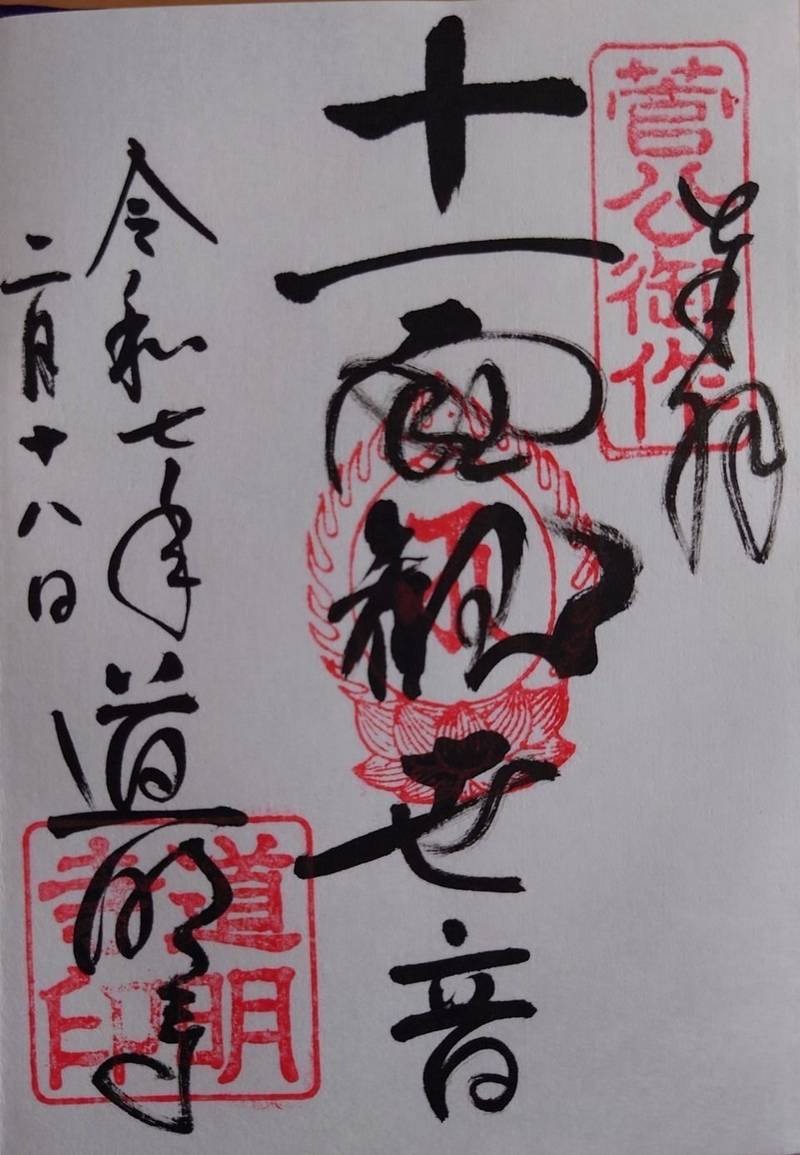 奉拝
菅公御作
十一面観世音
令和七年
二月十八日
道明寺
道明寺印